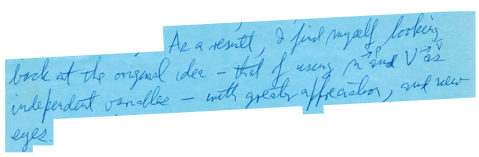 As a result, I find myself looking
back at the original idea – that of using n⃗ and V⃗ as
independent variables – with greater appreciation, and new
eyes.